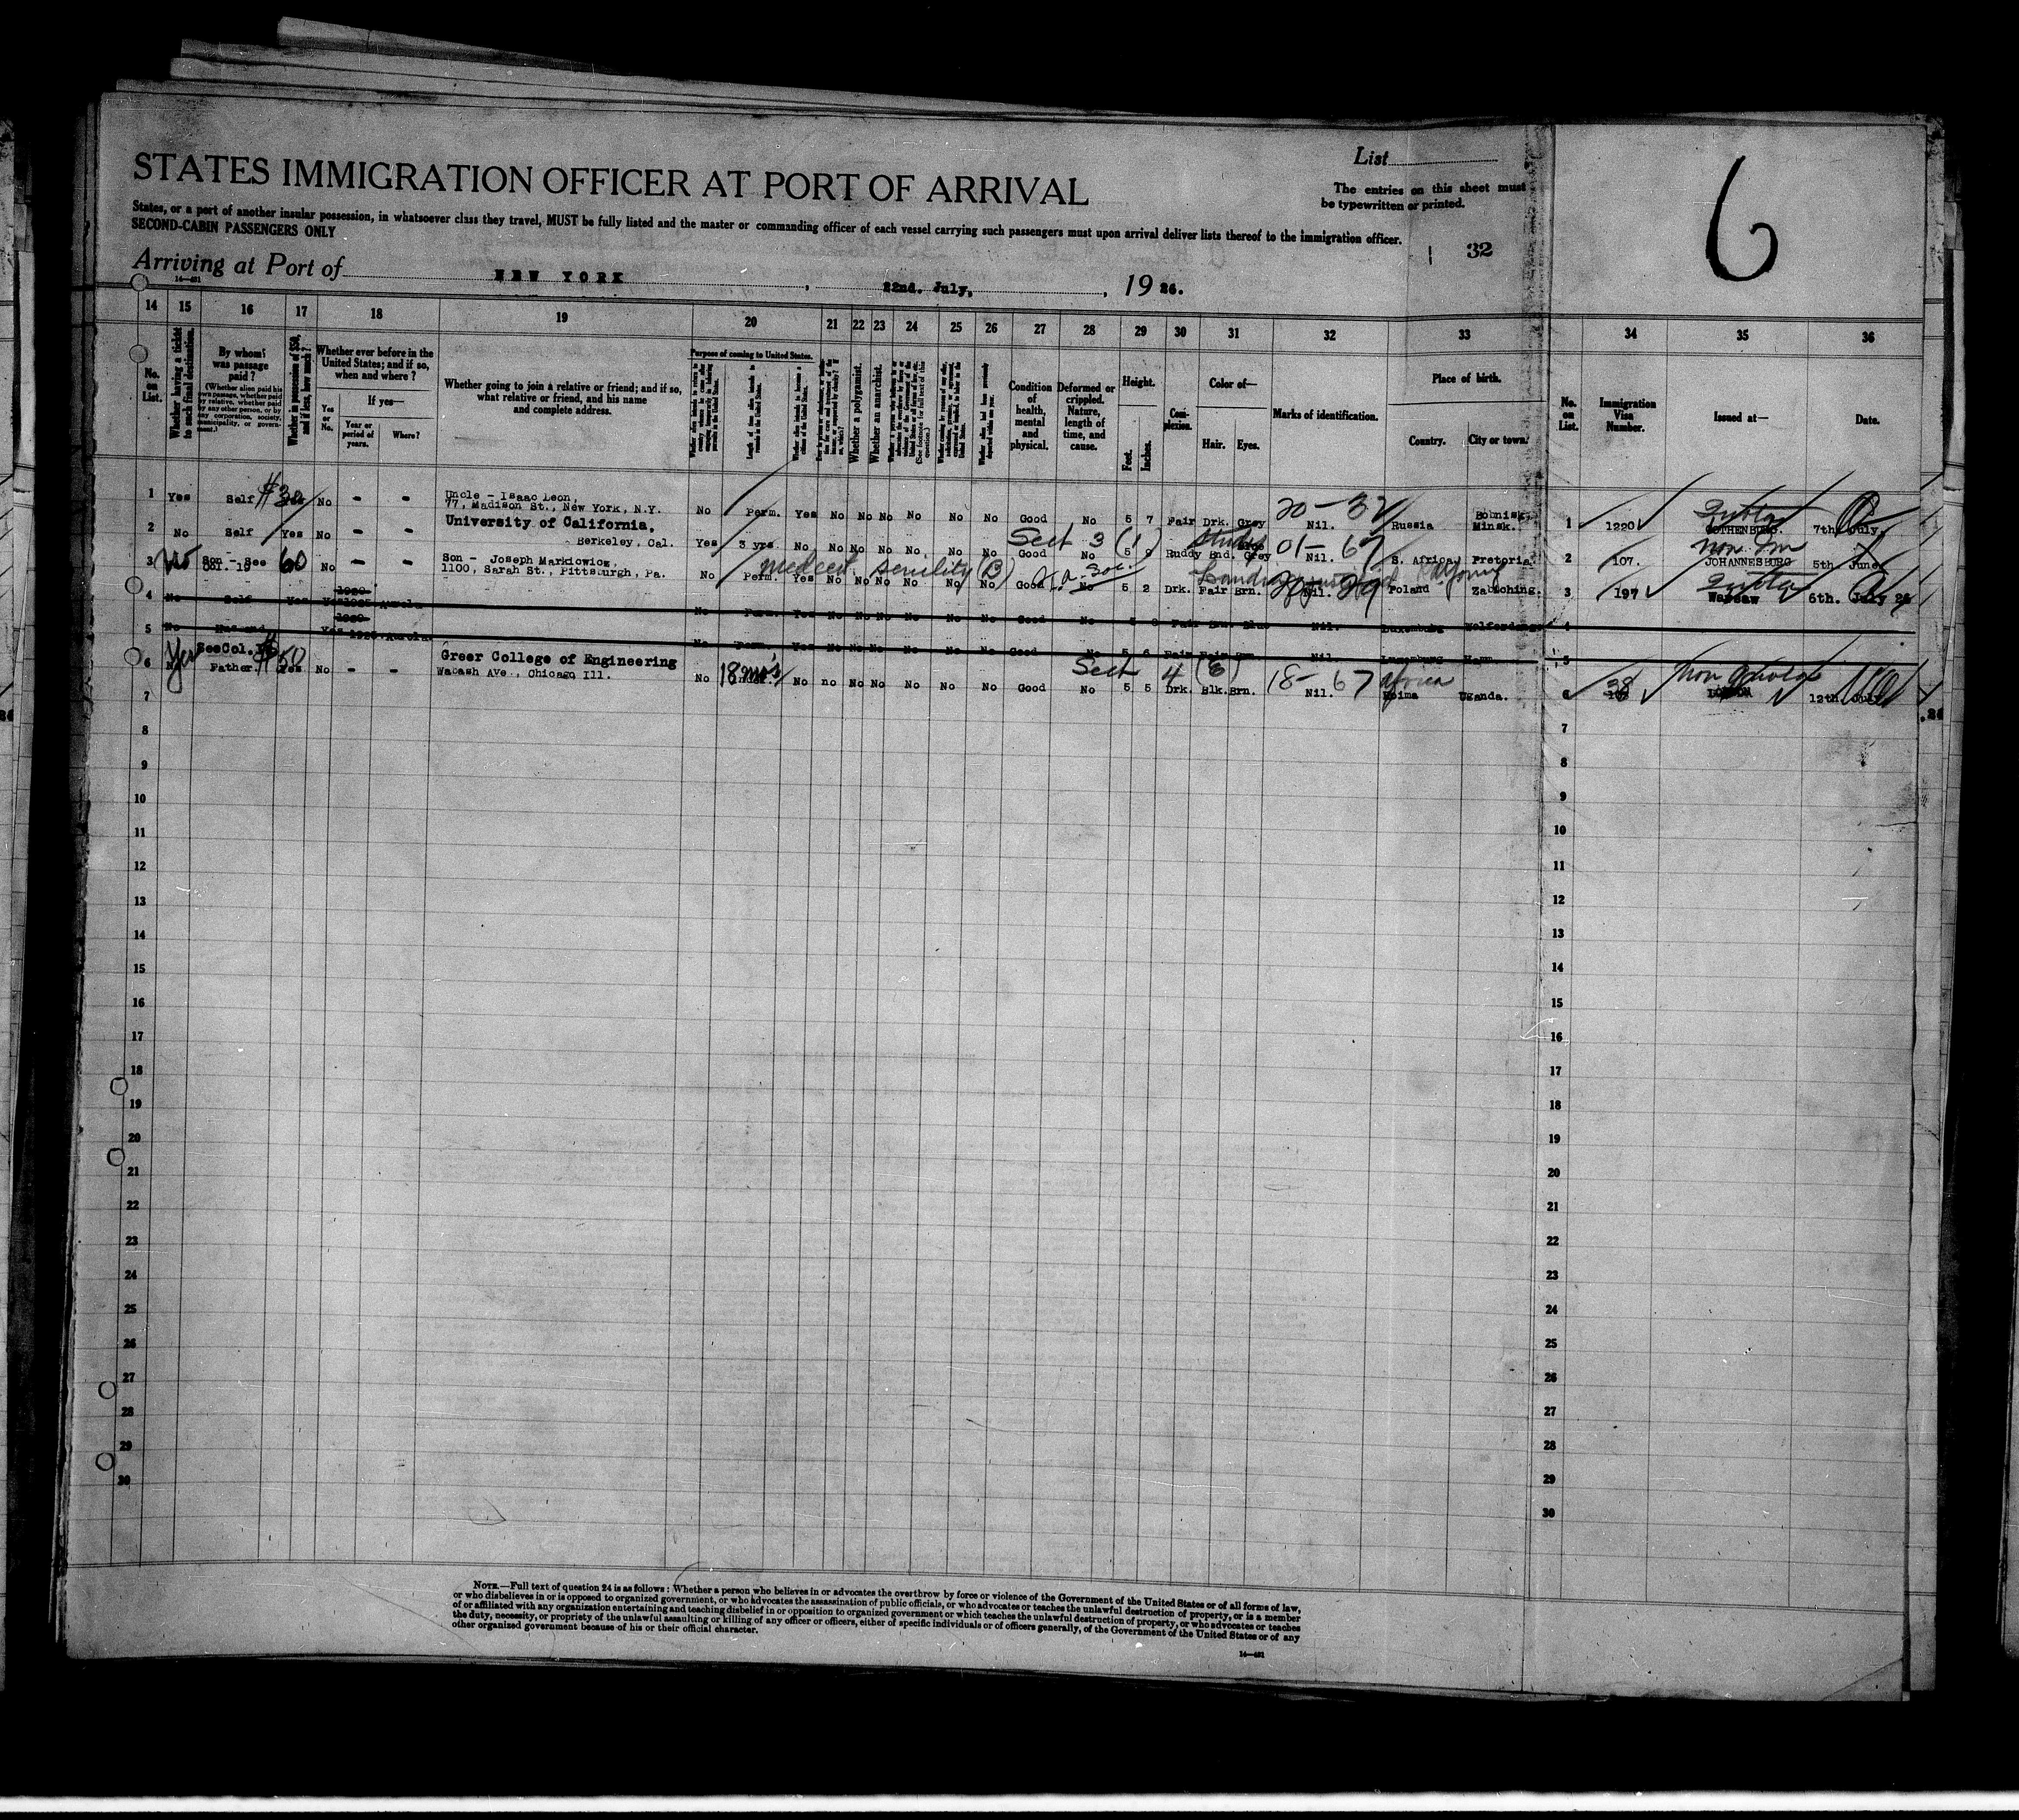 List
STATES IMMIGRATION OFFICER AT PORT OF ARRIVAL
The entries on this sheet must
be typewritten or printed.
States, or a port of another insular possession, in whatsoever class they travel, MUST be fully listed and the master or commanding officer of each vessel carrying such passengers must upon arrival deliver lists thereof to the immigration officer.
SECOND-CABIN PASSENGERS ONLY
32
6
Arriving at Port of NEW YORK, 22nd. July, 1926.
14 15 16 17 18 19 20 21 22 23 24 25 26 27 28 29 30 31 32 33 34 35 36
No. on List.
Whether having a ticket to such final destination.
By whom was passage paid?
(Whether alien paid his own passage, whether paid by relative, whether paid by any other person, or by any corporation, society, municipality, or government.)
Whether in possession of $50, and if less, how much?
Whether ever before in the United States; and if so, when and where?
Yes or No.
If yes—
Year or period of years.
Where?
Whether going to join a relative or friend; and if so, what relative or friend, and his name and complete address.
Purpose of coming to United States.
Whether a polygamist.
Whether an anarchist.
Condition of health, mental and physical.
Deformed or crippled. Nature, length of time, and cause.
Height.
Feet. Inches.
Complexion.
Color of—
Hair. Eyes.
Marks of identification.
Place of birth.
Country. City or town.
No. on List.
Immigration Visa Number.
Issued at—
Date.
1 Yes Self $30 No - - Uncle - Isaac Leon,
77, Madison St., New York, N.Y. No Perm. Yes No No No No No No Good No 5 7 Fair Drk. Grey 20-32 Nil. Russia Minsk. 1 1220 Quota GOTHENBURG 7th July,
2 No Self Yes No - - University of California,
Berkeley, Cal. Yes 3 yrs. No No No No No No No Good No 5 9 Ruddy Bnd. Grey 01-67 Nil. S. Africa, Pretoria. 2 107. Non Im JOHANNESBURG 5th June
Sect 3 (1) Study
3 No Son - See Col. 19 60 No - - Son - Joseph Markiowicz,
1100, Sarah St., Pittsburgh, Pa. No Perm. Yes No No No No No No Good No 5 2 Drk. Fair Brn. Nil. 29 Poland 3 197 Quota Warsaw 6th. July 26
senility (B)
4 No Self Yes Yes No Perm. Yes No No No No No No Good No Nil. Luxemburg 4
5 No Husband Yes No Perm. Yes No No No No No No Good No 5 6 Fair Fair Nil. 5
6 Yes See Col. Father. $50 Yes No - - Greer College of Engineering
Wabash Ave., Chicago Ill. No 18 mo's No no No No No No No Good No 5 5 Drk. Blk. Brn. 18-67 Nil. Africa Uganda. 6 38 Non Quota LONDON 12th July
Sect 4 (E)
7 7
8 8
9 9
10 10
11 11
12 12
13 13
14 14
15 15
16 16
17 17
18 18
19 19
20 20
21 21
22 22
23 23
24 24
25 25
26 26
27 27
28 28
29 29
30 30
NOTE.—Full text of question 24 is as follows: Whether a person who believes in or advocates the overthrow by force or violence of the Government of the United States or of all forms of law,
or who disbelieves in or is opposed to organized government, or who advocates the assassination of public officials, or who advocates or teaches the unlawful destruction of property, or is a member
of or affiliated with any organization entertaining and teaching disbelief in or opposition to organized government or which teaches the unlawful destruction of property, or who advocates or teaches
the duty, necessity, or propriety of the unlawful assaulting or killing of any officer or officers, either of specific individuals or of officers generally, of the Government of the United States or of any
other organized government because of his or their official character.
14—481